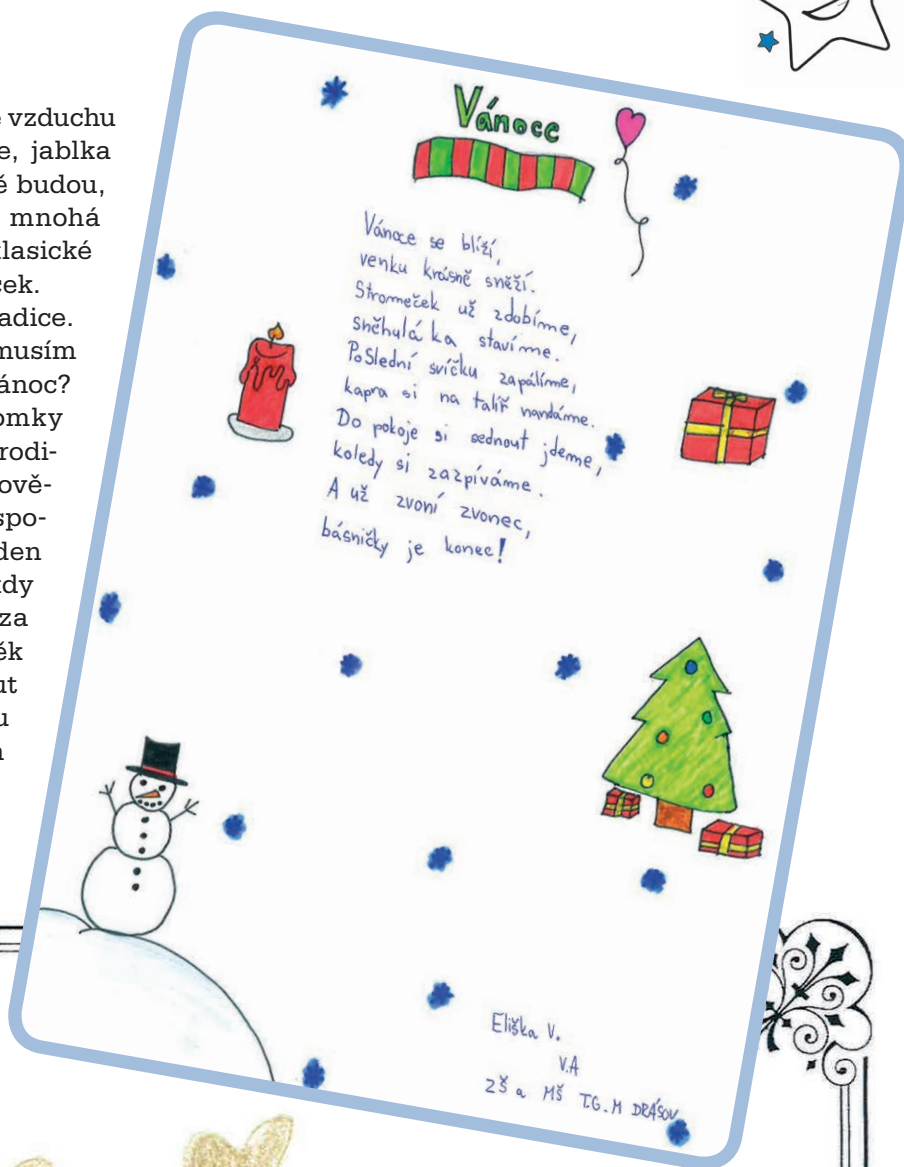 vzduchu
e, jablka
é budou,
mnohá
lasické
ček.
adice.
musím
ánoc?
omky
rodi-
ově-
spo-
den
kdy
za
ěk
ut
u
Vánoce
Vánoce se blíží,
venku krásně sněží.
Stromeček už zdobíme,
sněhuláka stavíme.
PoSlední svíčku zapálíme,
kapra si na talíř nandáme.
Do pokoje si sednout jdeme,
koledy si zazpíváme.
A už zvoní zvonec,
básničky je konec!
Eliška V.
V.A
ZŠ a MŠ T.G.M DRÁSOV